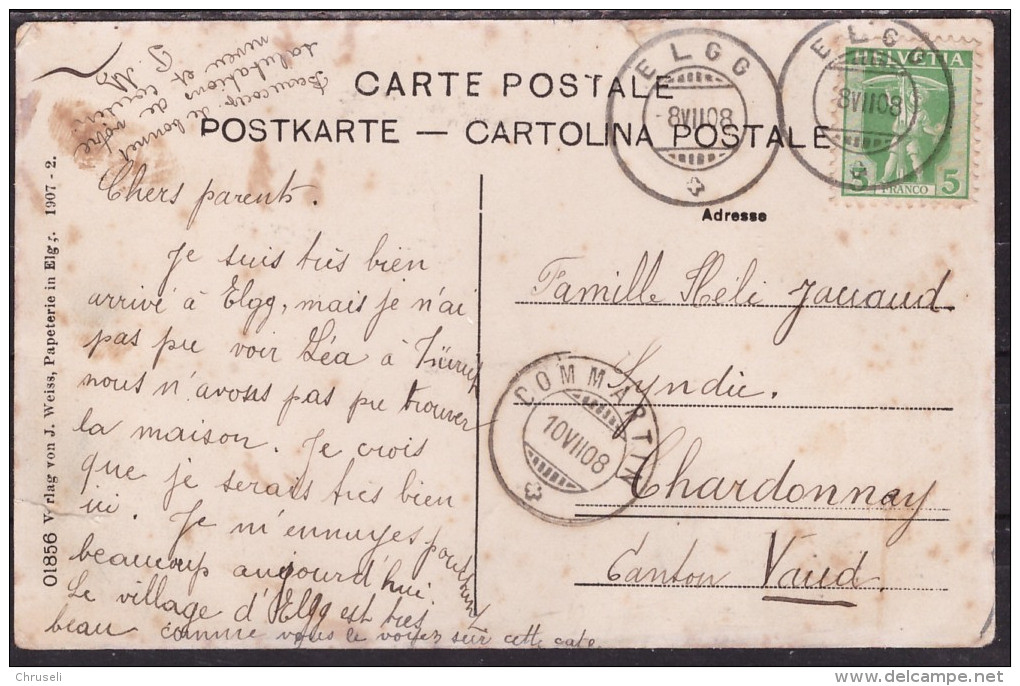 CARTE POSTALE
POSTKARTE — CARTOLINA POSTALE
Adresse
ELGG
-8VII08
ELGG
-8VII08
HELVETIA
5 FRANCO 5
Beaucoup de bonnes
salutations de votre
Chers parents.
Je suis très bien
arrivé à Elgg, mais je n'ai
pas pu voir Léa à Zürich
nous n'avons pas pu trouver
la maison. Je crois
que je serais très bien
ici. Je m'ennuyes pourtant
beaucoup aujourd'hui.
Le village d'Elgg est très
beau comme vous le voyez sur cette cate
Famille Héli Jaccaud
Syndic
Chardonnay
Canton Vaud
COMMARTIN
10VII08
01856 Verlag von J. Weiss, Papeterie in Elgg. 1907 - 2.
Chruseli
delcampe.net